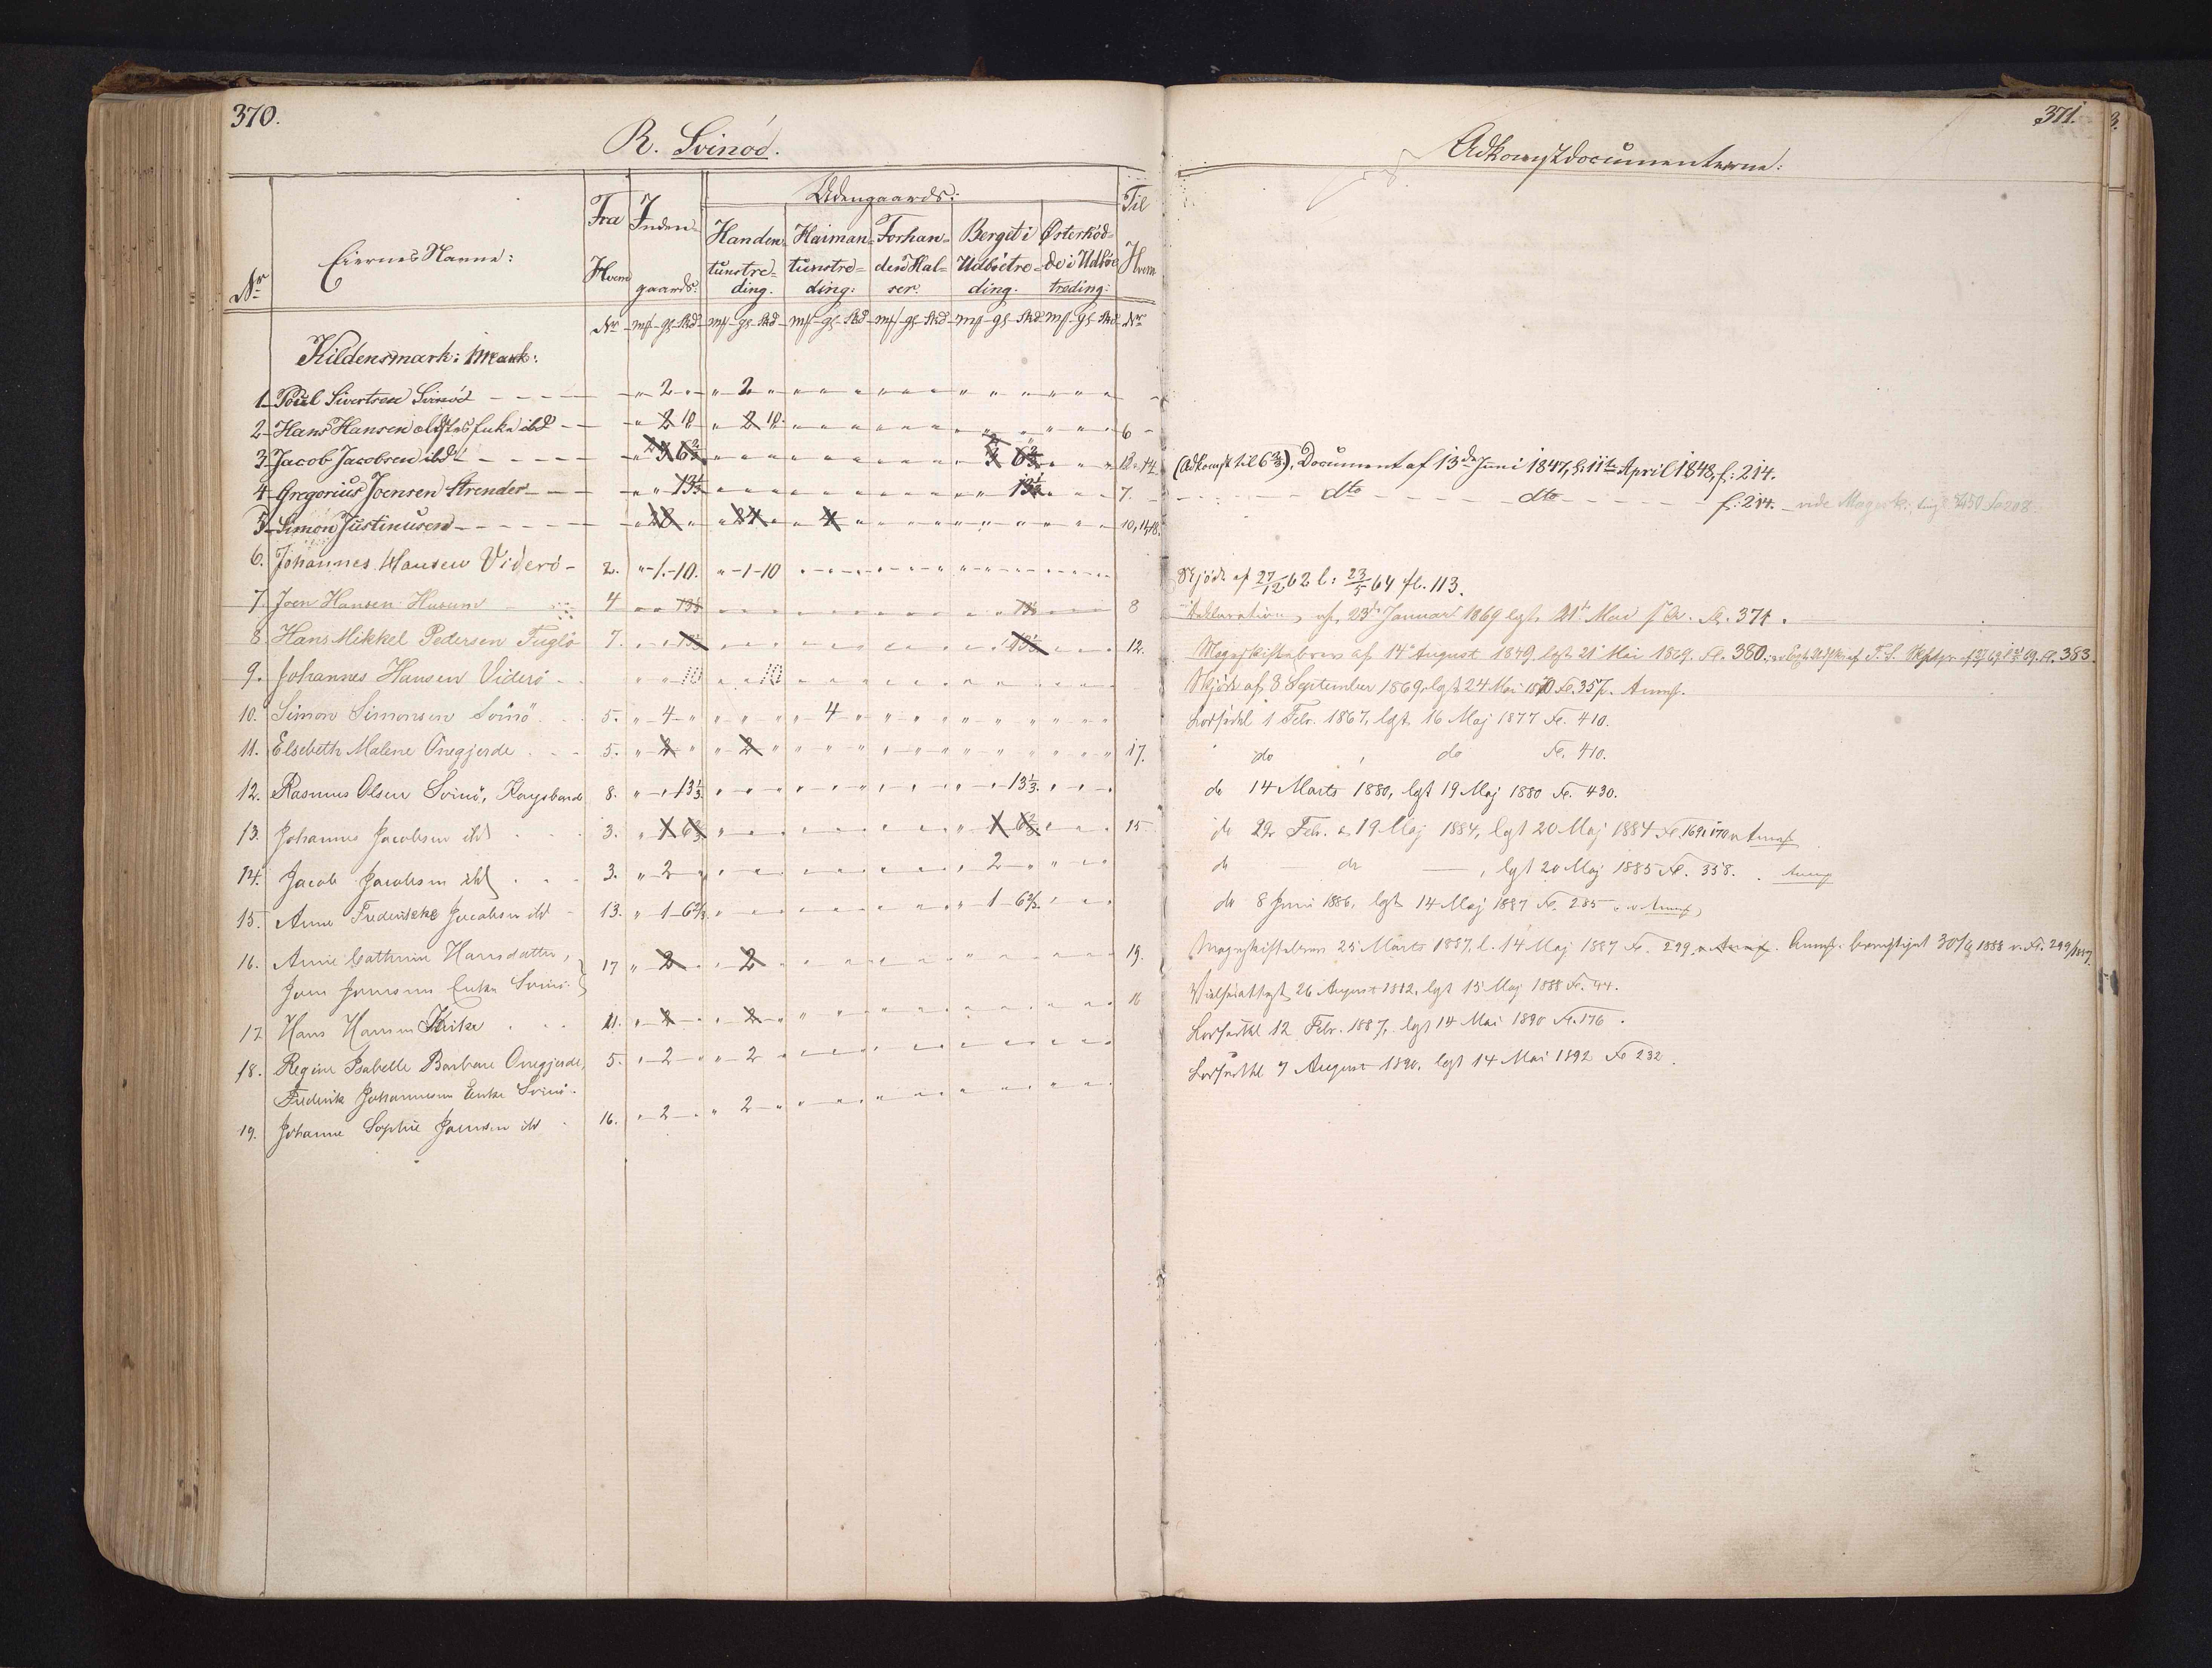 370.
R. Svinöe.
Nr
Eiernes Navne:
Fra Hvem
Inden-gaards:
Udengaards:
Handen-tunstre-ding.
Haiman-tunstre-ding:
Forhan-den Hal-ser.
Berget i Udbøetre-ding.
Østerhöd-de i Udböe treding:
Til Hvem
Nr mk-gl-Skd mk-gl-Skd mk-gl-Skd mk-gl-Skd mk-gl-Skd mk-gl-Skd Nr
Kildensmark: Mark:
1 Poul Sivertsen Svinöe - - - - " 2 " " 2 "
2 Hans Hansen ældstes Enke ibd - - " 2 10 " 2 10 6
3 Jacob Jacobsen ibd - - - - " 3 6 2/3 3 6 2/3 13 14
4 Gregorius Joensen Strender - - " " 13 1/3 13 1/3 7.
5 Simon Justinusen - - - - " 28 " 24 4 10, 11, 18.
6. Johannes Hansen Viderö - 2. " 1 - 10. " - 1 - 10
7. Joen Hansen Husum 4 " " 13 1/3 13 1/3 8
8. Hans Mikkel Pedersen Fuglö 7. " " 13 1/3 13 1/3 12.
9. Johannes Hansen Viderö - - " " 10 " " 10
10. Simon Simonsen Svinö. 5. " 4 " 4
11. Elsebeth Malene Önegjerde 5. " 2 " " 2 " 17.
12. Rasmus Olsen Svinö, Kongsbonde 8. " " 13 1/3 13 1/3.
13. Johannes Jacobsen ibd 3. " 1 6 2/3 1 6 2/3 15
14. Jacob Jacobsen ibd 3. " 2 " 2
15. Anne Frederikke Jacobsen ibd 13. " 1 - 6 2/3 1 - 6 2/3.
16. Anne Cathrine Hansdatter, 17 " 2 " 2 19.
Joen Joensens Enke Svinö.
17 Hans Hansen Krike 11. " 2 " 2 16
18. Regine Isabelle Barbara Önegjerde, 5. " 2 " " 2
Frederik Johannesens Enke Svinö.
19. Johanne Sophie Joensen ibd 16. " 2 " " 2
371.
Adkomstdocumenterne:
(Adkomst til 6 2/3), Document af 13de Juni 1847, l: 11te April 1848, f: 214.
- - - dto - - - - dto - - - - f: 214. vide
Skjöde af 27/12 62 l: 23/5 64 fl. 113.
Deklaration af 23de Januar 1869 lgst 21de Mai s. A. Fl. 374.
Mageskiftebrev af 14 August 1849 lgst 21 Mai 1869. Fl. 380.
Skjöde af 8 September 1869, lgst 24 Mai 1870 Fl. 357. Anmk.
Lodseddel 1 Febr. 1867, lgst 16 Maj 1877 Fl. 410.
do do Fl. 410.
do 14 Marts 1880, lgst 19 Maj 1880 Fl. 430.
do 22 Feb. & 19 Maj 1884, lgst 20 Maj 1884 Fl. 169, 170 Anmk
do do — , lgst 20 Maj 1885 Fl. 358. Anmk
do 8 Juni 1886, lgst 14 Maj 1887 Fl. 285 Anmk
Mageskiftebrev 25 Marts 1887, l. 14 Maj 1887 Fl. 299 v. Anmk. Anmk: berigtiget 30/4 1888 v. Fl. 299/1887.
Vielsesattest 26 August 1882, lgst 15 Maj 1888 Fl. 44.
Lodseddel 12 Febr. 1887, lgst 14 Mai 1890 Fl. 176.
Lodseddel 7 August 1890, lgst 14 Mai 1892 Fl 232.